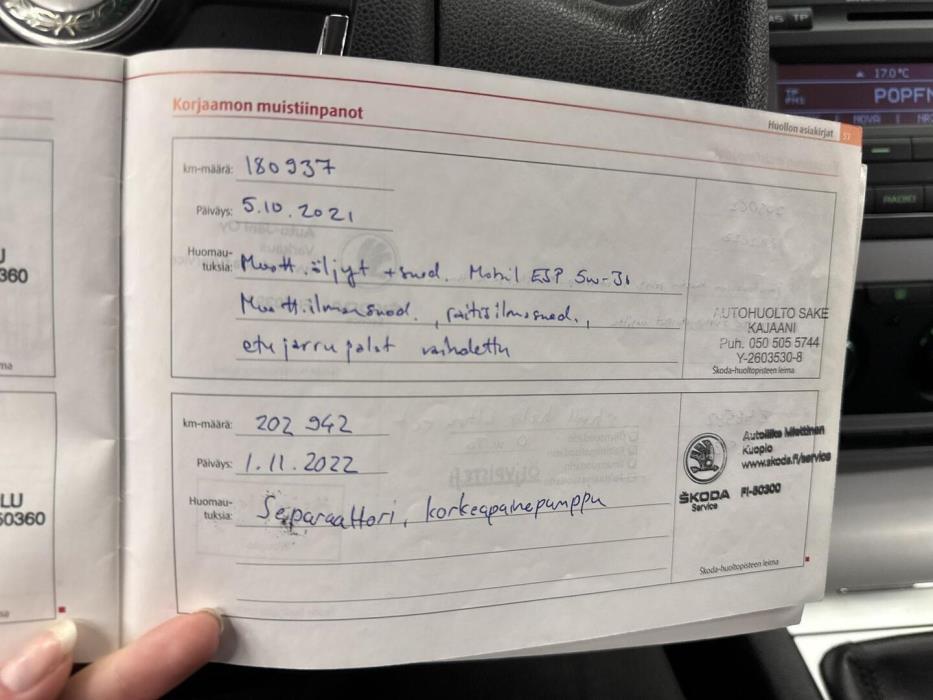 TP
17.0°C
TP
POPFM
NOVA
RADIO
Korjaamon muistiinpanot
Huollon asiakirjat 57
km-määrä: 180 937
Päiväys: 5.10.2021
Huomau-
tuksia: Moott.öljyt + suod. Mobil ESP 5w-30
Moott.ilmansuod., raitisilmasuod.,
etujarrupalat vaihdettu
AUTOHUOLTO SAKE
KAJAANI
Puh. 050 505 5744
Y-2603530-8
Škoda-huoltopisteen leima
km-määrä: 202 942
Päiväys: 1.11.2022
Huomau-
tuksia: Separaattori, korkeapainepumppu
Autoliike Miettinen
Kuopio
www.skoda.fi/service
ŠKODA FI-50300
Service
Škoda-huoltopisteen leima
360
LU
50360